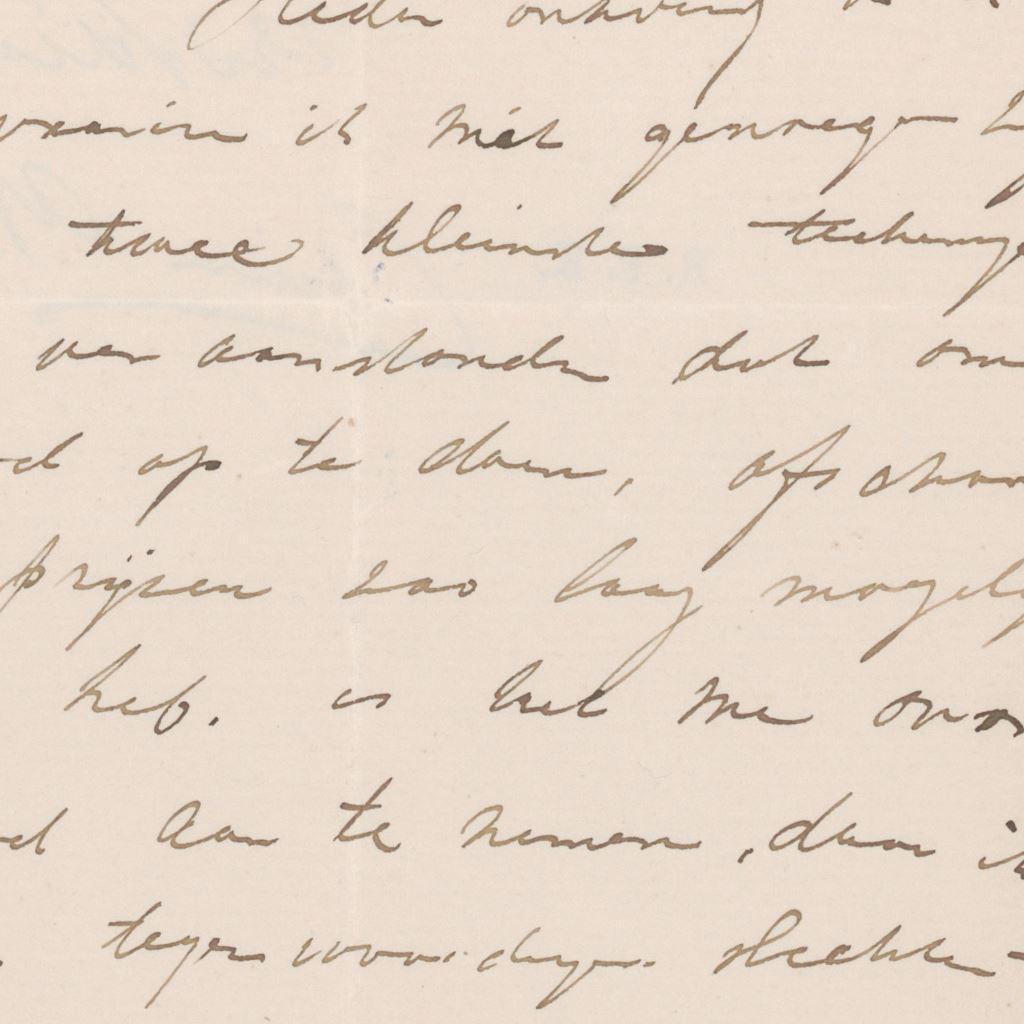 Heden ontving
waarin ik met genoegen
twee kleinste teekeninge
ver aanstonds dat om
op te doen, ofschoon
prijzen zoo laag mogely
heb. is het me onm
aan te nemen, daar ik
tegenwoordigen slechten